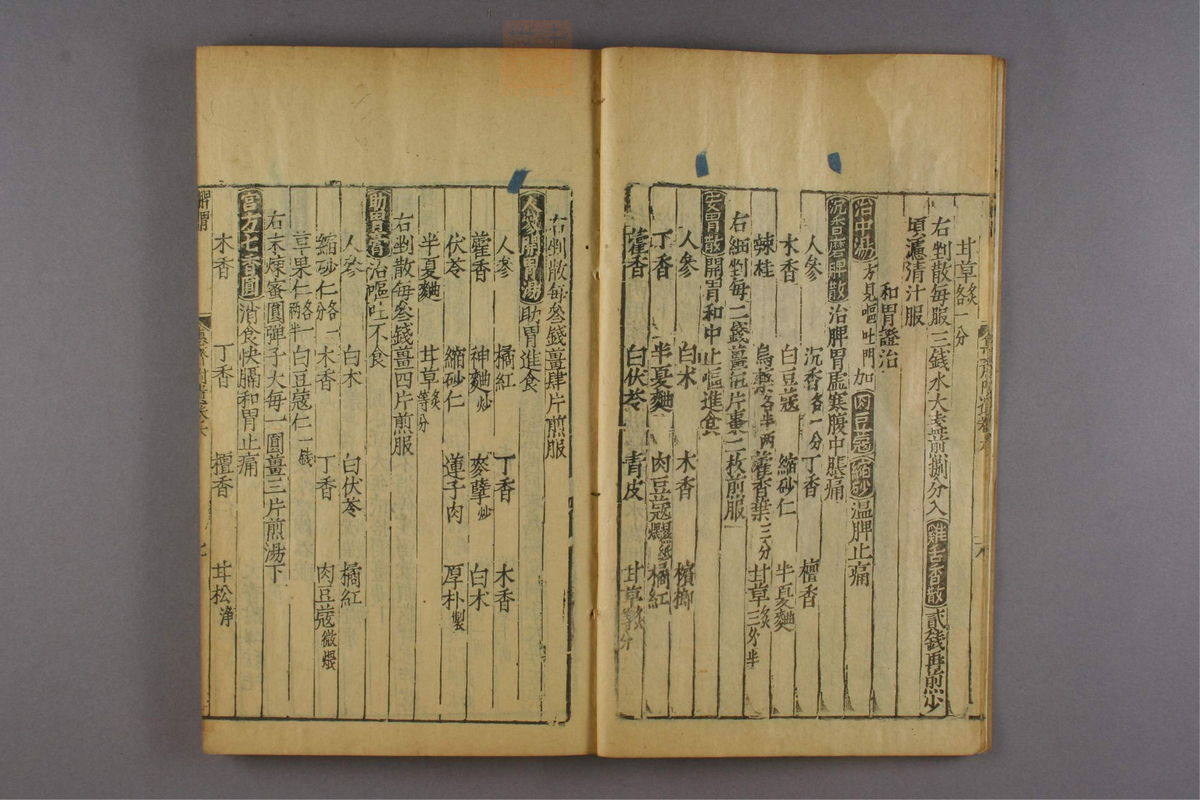 甘草炙各一分
右剉散每服三錢水大盞煎捌分入雞舌香散貳錢再煎少
頃濾清汁服
和胃證治
治中湯方見嘔吐門加肉豆蔻縮砂温脾止痛
沉香磨脾散治脾胃虛寒腹中脹痛
人參 沉香各一分 丁香 檀香
木香 白豆蔻 縮砂仁 半夏麯
辣桂 烏藥各半兩 藿香葉三分 甘草炙三分半
右細剉每二錢薑三片棗二枚煎服
安胃散開胃和中止嘔進食
人參 白朮 木香 檳榔
丁香 半夏麯 肉豆蔻濕紙煨 橘紅
藿香 白伏苓 青皮 甘草炙等分
右剉散每叁錢薑肆片煎服
人參開胃湯助胃進食
人參 橘紅 丁香 木香
藿香 神麯炒 麥糵炒 白朮
伏苓 縮砂仁 蓮子肉 厚朴製
半夏麯 甘草炙等分
右剉散每叁錢薑四片煎服
助胃膏治嘔吐不食
人參 白朮 白伏苓 橘紅
縮砂仁各一分 木香 丁香 肉豆蔻微煨
草果仁各一兩半 白豆蔻仁一錢
右末煉蜜圓彈子大每一圓薑三片煎湯下
官方七香圓消食快膈和胃止痛
木香 丁香 檀香 甘松淨
脾胃